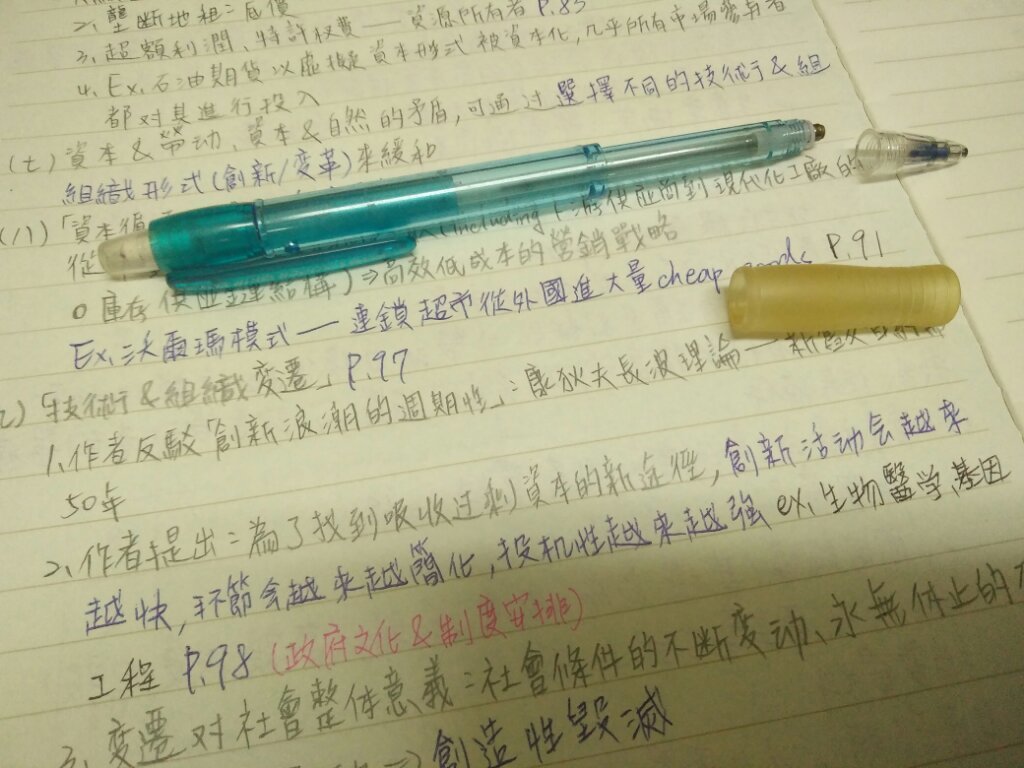 2、壟断地租：底價
3、超額利潤、特許权費——資源所有者 P.83
4、Ex、石油期貨以虛擬資本形式被資本化，几乎所有市場參与者
都对其進行投入
(七) 資本&勞动、資本&自然的矛盾，可通过選擇不同的技術&組
組織形式(創新/变革)來緩和
「資本循
(including 上游供应商到現代化工廠的
從
0庫存供应鏈結構)⇒高效低成本的營銷戰略
Ex、沃爾瑪模式——連鎖超市從外國進大量cheap goods P.91
「技術&組織变遷」P.97
1、作者反駁「創新浪潮的週期性」：康狄夫長波理論——
50年
2、作者提出：為了找到吸收过剩資本的新途徑，創新活动会越來
越快，环節会越來越簡化，投机性越來越強 ex、生物醫学、基因
工程 P.98 (政府文化&制度安排)
3、变遷对社會整体意義：社會條件的不断变动、永無休止的
⇒創造性毀滅